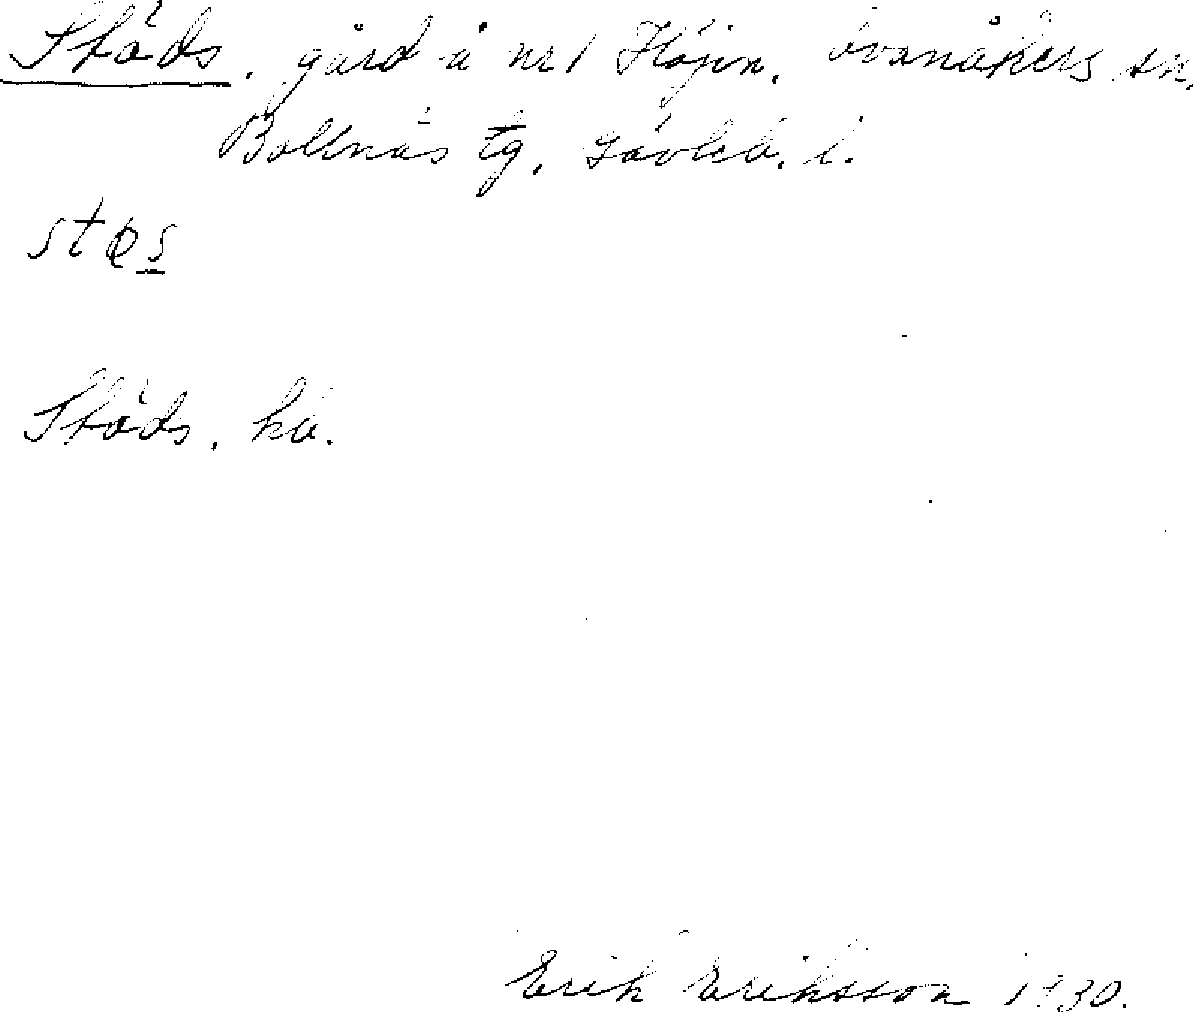 Stöds, gård å nr 1 Höjen, Ovanåkers sn,
Bollnäs tg, Gävleb. l.
Stöds, kb.
Erik Eriksson 1930.